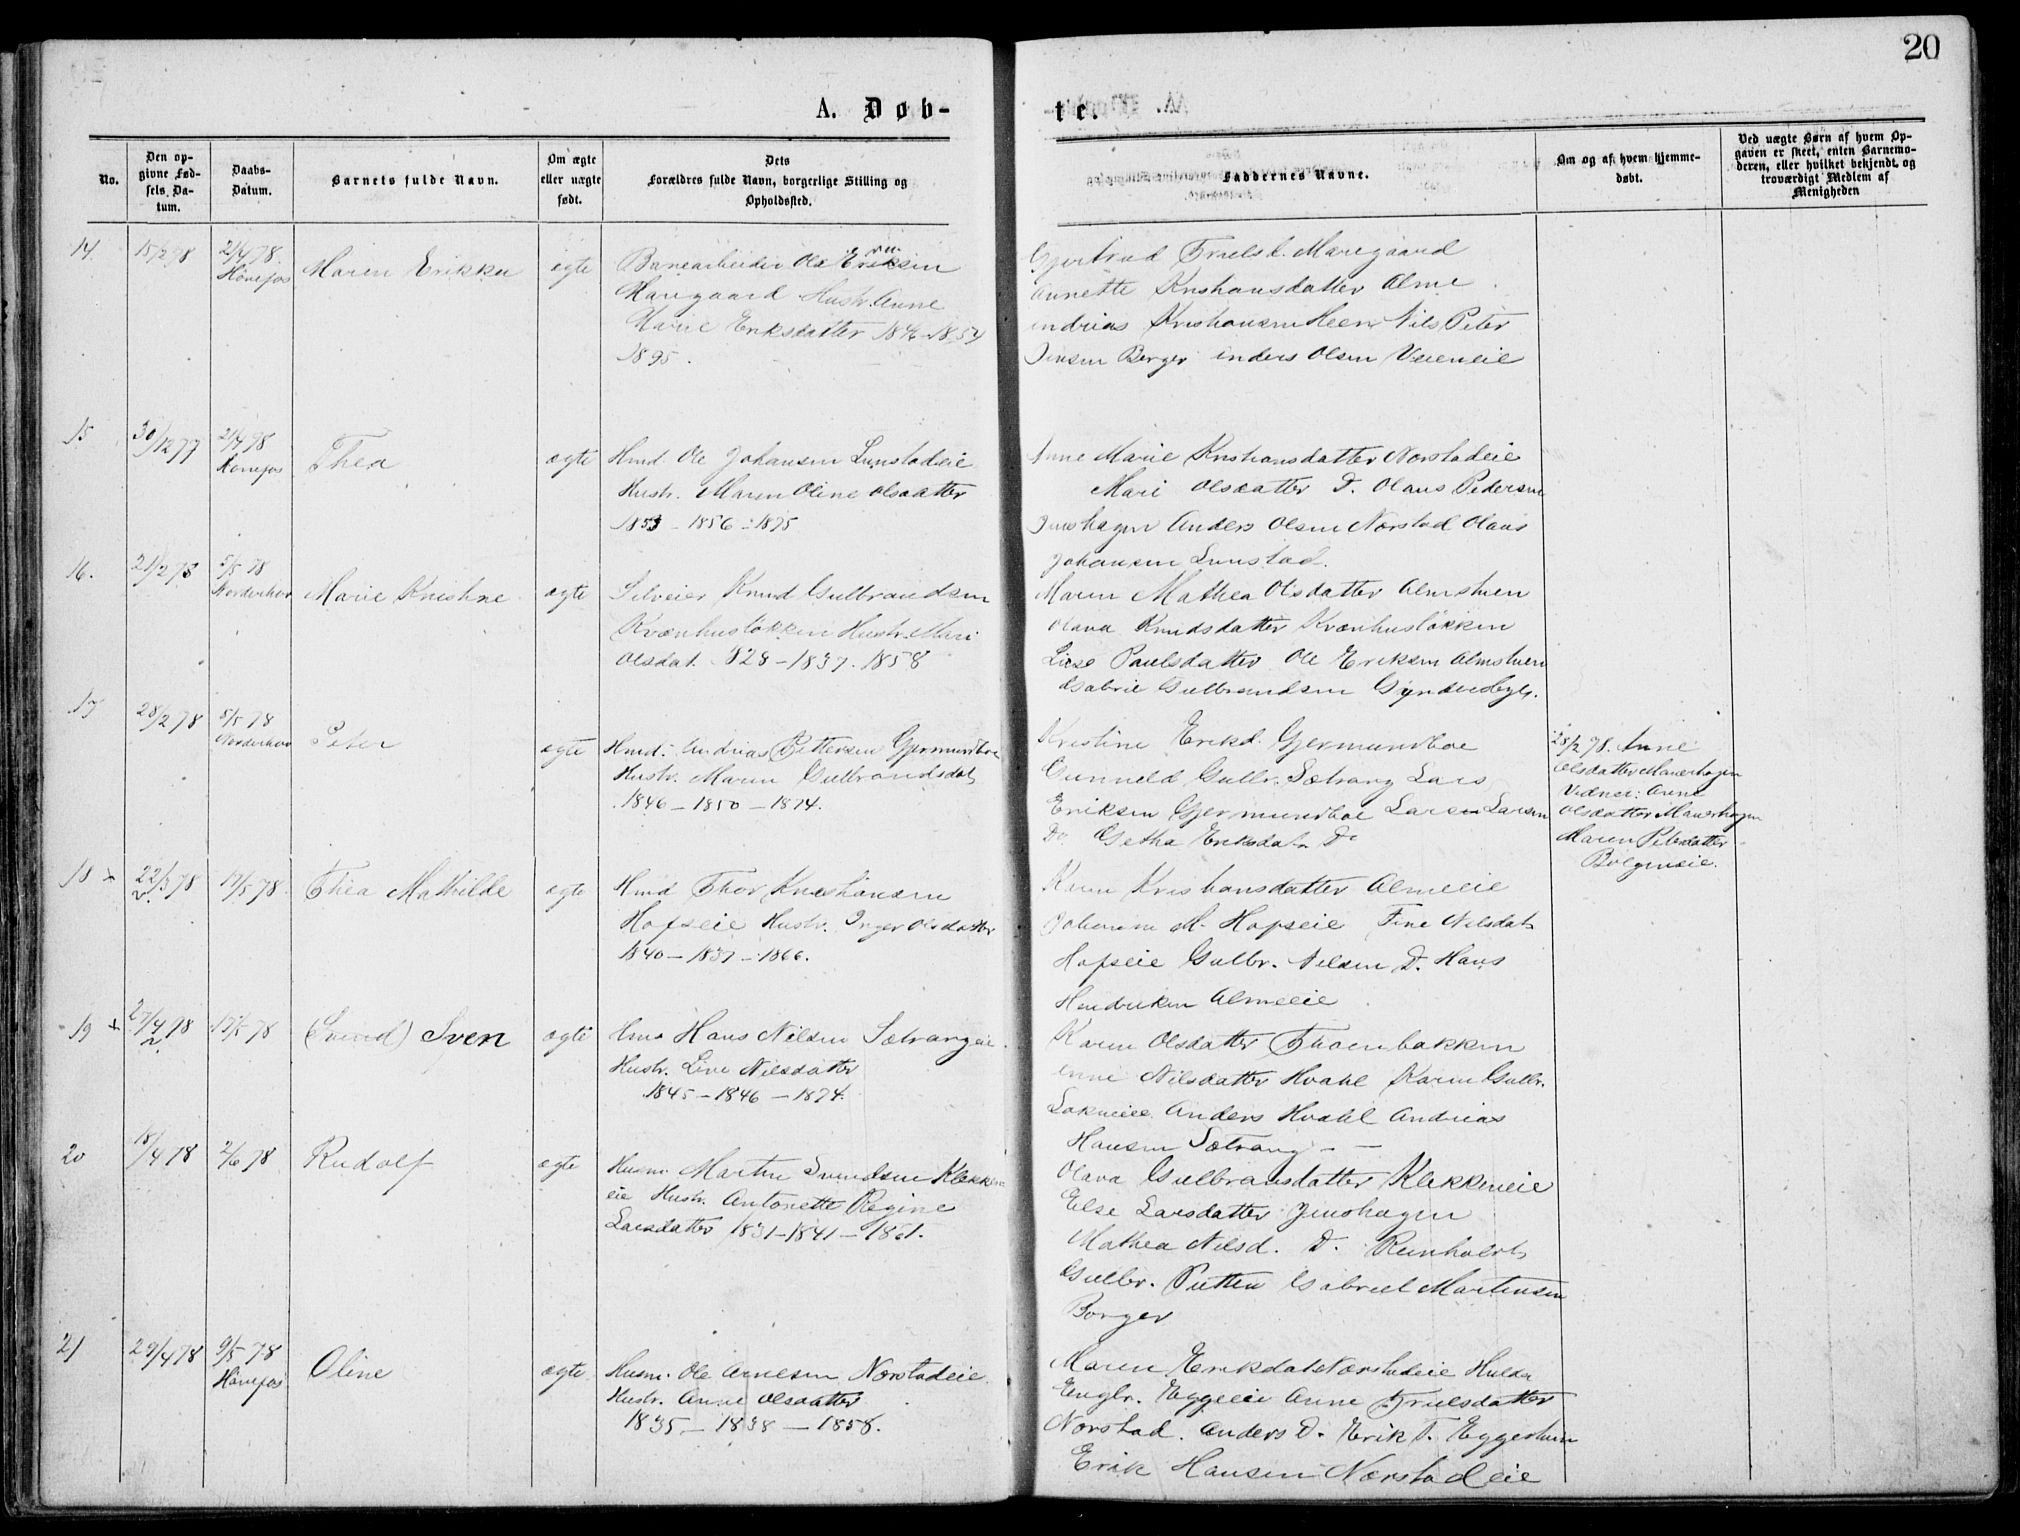 20
A. Døb-
te.
No.
Den op-
givne Fød-
sels Da-
tum.
Daabs-
Datum.
Barnets fulde Navn.
Om ægte
eller uægte
født.
Dets
Forældres fulde Navn, borgerlige Stilling og
Opholdssted.
Faddernes Navne.
Om og af hvem hjemme-
døbt.
Ved uægte Børn af hvem Op-
gaven er skeet, enten Barnemo-
deren, eller hvilket bekjendt og
troværdigt Medlem af
Menigheden
14. 15/2 78 21/4 78. Hønefos Maren Erikka ægte
Banearbeider Ole Eriksen
Maregaard Hustr. Anne
Marie Eriksdatter 1846-1854
1895.
Gjertrud Truelsd. Maregaard
Annette Kristiansdatter Alme
Andreas Kristiansen Heen Nils Peter
Jensen Berger Anders Olsen Veieneie
15 30/12 77 21/4 78 Hønefos Thea ægte
Hmd. Ole Johansen Lunstadeie
Hustr. Maren Oline Olsdatter
1853 - 1856 - 1875
Anne Marie Kristiansdatter Norstadeie
Mari Olsdatter D. Olaus Pedersen
Jenshagen Anders Olsen Norstad Olaus
Johansen Lunstad.
16. 21/2 78 5/5 78 Norderhov Marie Kristine ægte
Selveier Knud Gulbrandsen
Kværnhusløkken Hustr. Mari
Olsdat. 1828 - 1837. 1858
Maren Mathea Olsdatter Almstuen
Olava Knudsdatter Kværnhusløkken
Lise Paulsdatter Ole Eriksen Almstuen
Gabriel Gulbrandsen
17 28/2 78 5/5 78 Norderhov Peter ægte
Hmd. Andreas Pettersen Gjermundboe
Hustr. Maren Gulbrandsdat
1846 - 1850 - 1874.
Kristine Erikd. Gjermundboe
Gunneld Gulbr. Sætrang Lars
Eriksen Gjermundboe Larsen Larsen
Do Getha Eriksdat. Do
28/2 78. Anne
Olsdatter Mauerhagen
Vidner: Anne
Olsdatter Mauerhagen
Maren Petersdatter
18 x 22/3 78 2. 17/5 78. Thea Mathilde ægte
Hmd Thor Kristiansen
Hofseie Hustr. Inger Olsdatter
1840 - 1837 - 1866.
Karen Kristiansdatter Almeeie
Johanne M. Hofseie Tine Nilsdat
Hofseie Gulbr. Nilsen D. Hans
Hendriksen Almeeie
19 x 27/4 78 2 17/5 78 (Svend) Sven ægte
Hans Nilsen Sætrangeie.
Hustr. Live Nilsdatter
1845 - 1846 - 1874.
Karen Olsdatter Thoenbakken
Anne Nilsdatter Hvahl Karen Gulbr.
Anders Hvahl Andreas
Hansen Sætrang - -
20 18/4 78 2/6 78 Rudolf ægte
Husm. Martin Svendsen Klekken
eie Hustr. Antonette Regine
Larsdatter 1831 - 1841 - 1861.
Olava Gulbrandsdatter Klekkeneie
Else Larsdatter Jenshagen
Mathea Nilsd. D. Reinholdt
Gulbr. Putten Gabriel Martinsen
Borger
21 29/4 78 9/5 78 Hønefos Oline ægte
Husm. Ole Arnesen Norstadeie.
Hustr. Anne Olsdatter
1835 - 1838 - 1858.
Maren Erikdat Norstadeie Hulda
Engbr. Eggeeie Anne Truelsdatter
Norstad. Anders D. Erik T. Eggestuen
Erik Hansen Norstadeie